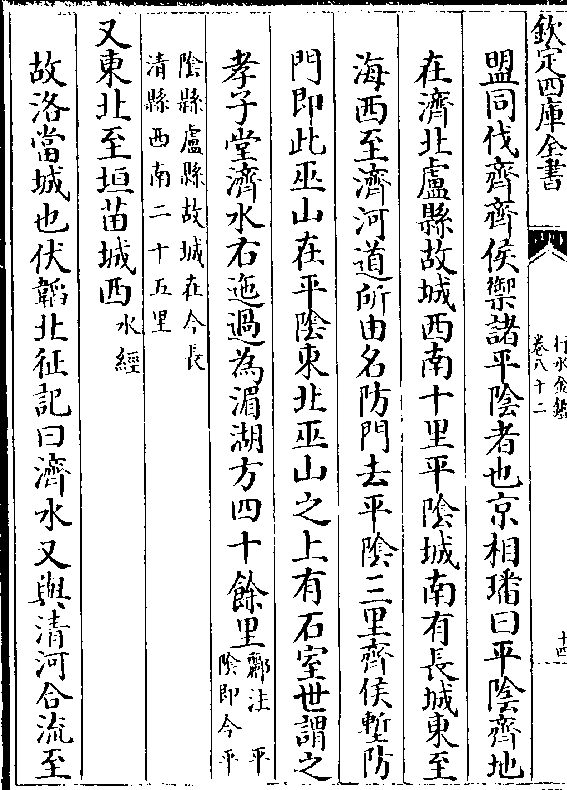 欽定四庫全書
行水金鑑
卷八十二
十四
盟同伐齊齊侯禦諸平陰者也京相璠曰平陰齊地
在濟北盧縣故城西南十里平陰城南有長城東至
海西至濟河道所由名防門去平陰三里齊侯塹防
門即此巫山在平陰東北巫山之上有石室世謂之
孝子堂濟水右迤遏為湄湖方四十餘里酈注 平
陰即今平
陰縣盧縣故城在今長
清縣西南二十五里
又東北至垣苗城西水經
故洛當城也伏韜北征記曰濟水又與清河合流至